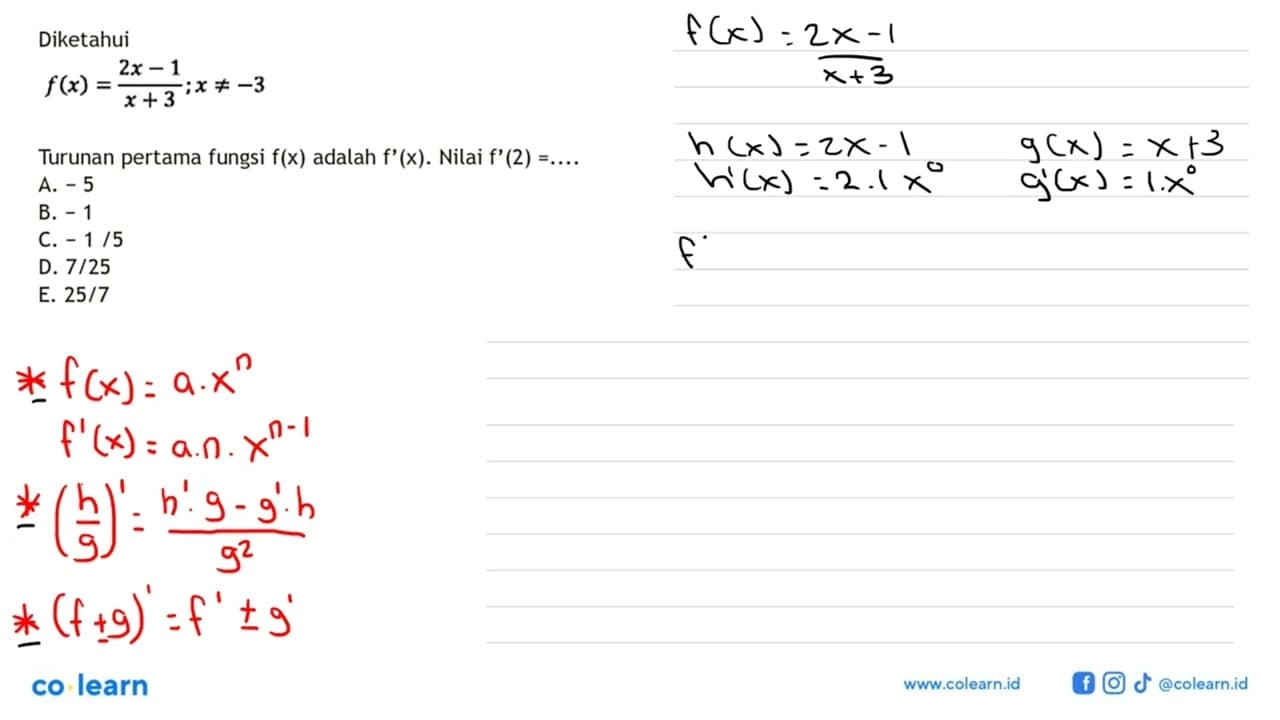 Diketahui
f(x) = \frac{2x - 1}{x + 3}; x ≠ -3
Turunan pertama fungsi f(x) adalah f'(x). Nilai f'(2) =....
A. - 5
B. - 1
C. - 1 /5
D. 7/25
E. 25/7
* f(x) = a.x^n
f'(x) = a.n.x^{n-1}
* (\frac{h}{g})' = \frac{h'.g - g'.h}{g^2}
* (f±g)' = f' ± g'
f(x) = \frac{2x-1}{x+3}
h(x) = 2x-1 g(x) = x+3
h'(x) = 2.1 x^0 g'(x) = 1.x^0
f'
co learn
www.colearn.id
@colearn.id